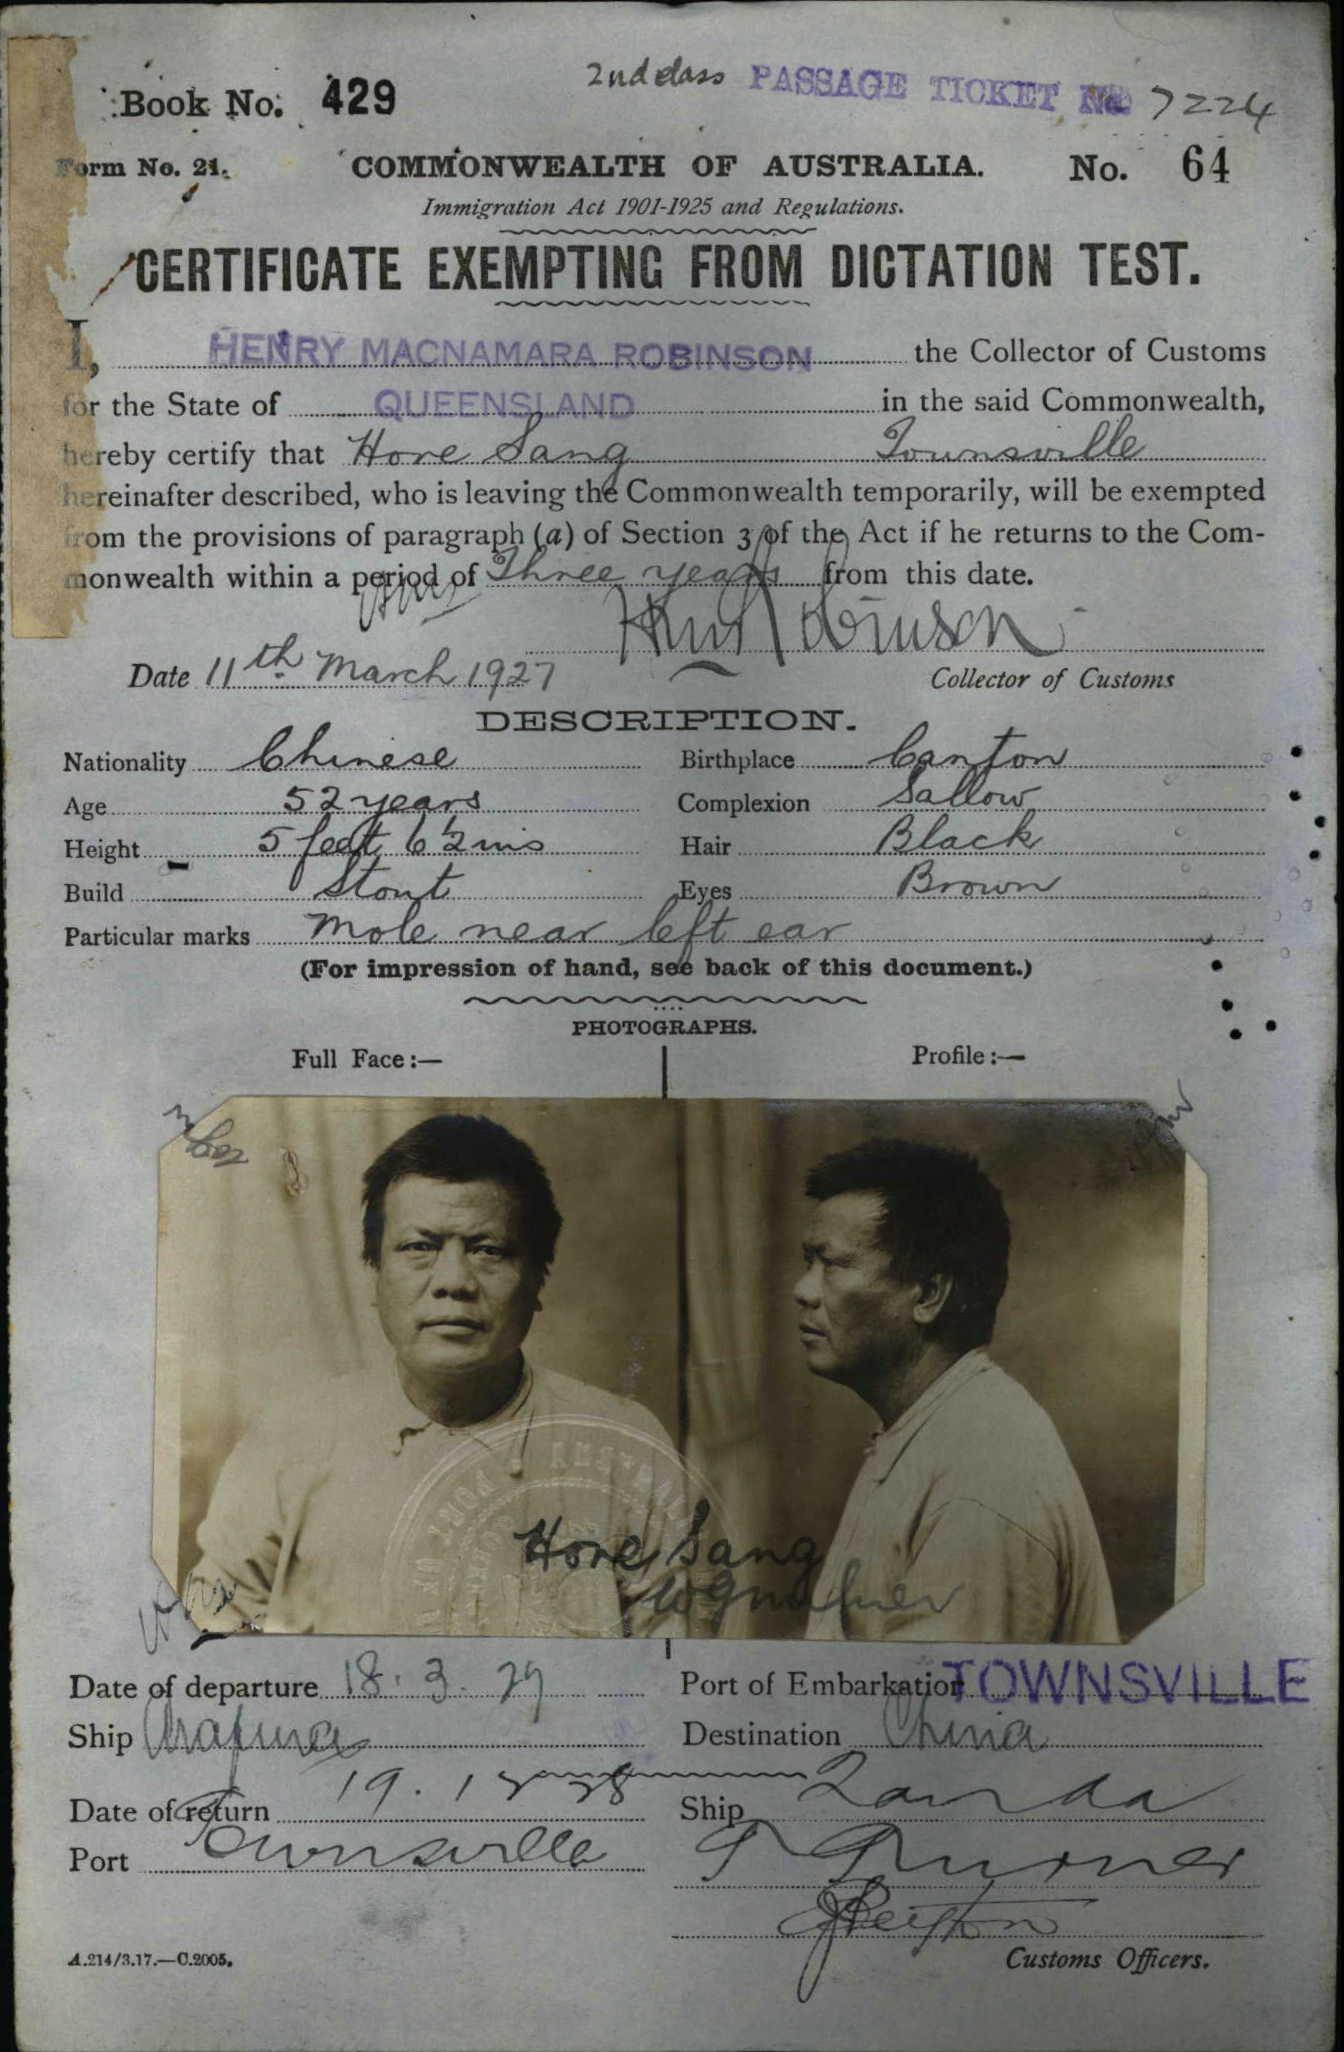 2nd class PASSAGE TICKET No 7224
Book No. 429
Form No. 21. COMMONWEALTH OF AUSTRALIA. No. 64
Immigration Act 1901-1925 and Regulations.
CERTIFICATE EXEMPTING FROM DICTATION TEST.
I, HENRY MACNAMARA ROBINSON the Collector of Customs
for the State of QUEENSLAND in the said Commonwealth,
hereby certify that Hore Sang Townsville
hereinafter described, who is leaving the Commonwealth temporarily, will be exempted
from the provisions of paragraph (a) of Section 3 of the Act if he returns to the Com-
monwealth within a period of Three years from this date.
Robinson
Date 11th March 1927 Collector of Customs
DESCRIPTION.
Nationality Chinese Birthplace Canton
Age 52 years Complexion Sallow
Height 5 feet 6½ ins Hair Black
Build Stout Eyes Brown
Particular marks Mole near left ear
(For impression of hand, see back of this document.)
PHOTOGRAPHS.
Full Face:— Profile:—
Hore Sang
Date of departure 18.3.27 Port of Embarkation TOWNSVILLE
Ship Arafura Destination China
Date of return 19.12.28 Ship Tanda
Port Townsville
Customs Officers.
A.214/3.17.—C.2005.